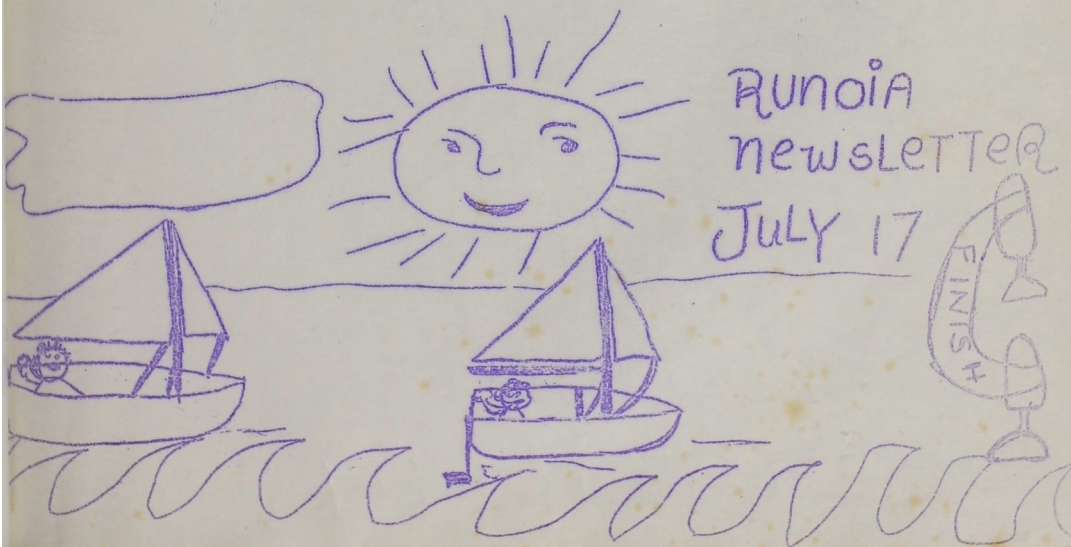 RUNOiA
newsLeTTeR
JULY 17
FINISH